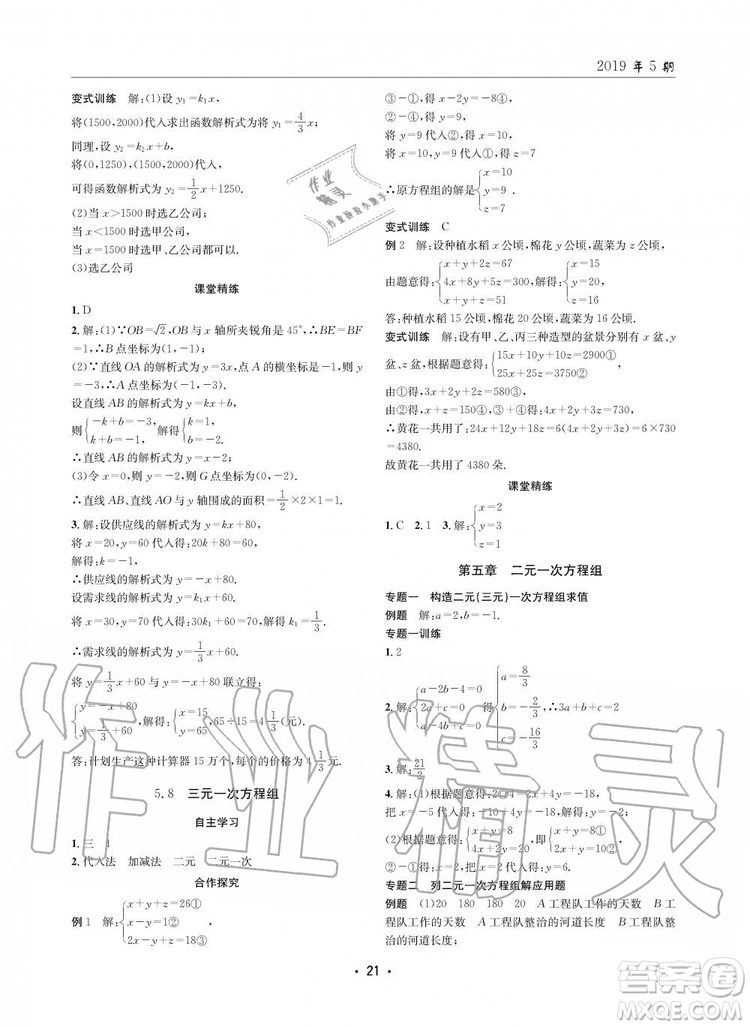 2019 年 5 期
变式训练　解:(1)设 y₁=k₁x,
将(1500,2000)代入求出函数解析式为将 y₁=4/3x;
同理,设 y₂=k₂x+b,
将(0,1250),(1500,2000)代入,
可得函数解析式为 y₂=1/2x+1250.
(2)当 x>1500 时选乙公司;
当 x<1500 时选甲公司;
当 x=1500 时选甲、乙公司都可以.
(3)选乙公司
课堂精练
1. D
2. 解:(1)∵OB=√2,OB与 x 轴所夹锐角是 45°,∴BE=BF
=1,∴B 点坐标为(-1,-1);
(2)∵直线 OA 的解析式为 y=3x,点 A 的横坐标是-1,则 y
=-3,∴A 点坐标为(-1,-3)
设直线 AB 的解析式为 y=kx+b,
则{-k+b=-3 k+b=-1 解得{k=1 b=-2
∴直线 AB 的解析式为 y=x-2;
(3)令 x=0,则 y=-2,则 G 点坐标为(0,-2),
∴直线 AB、直线 AO 与 y 轴围成的面积=1/2×2×1=1.
3. 解:设供应线的解析式为 y=kx+80,
将 x=20,y=60 代入得:20k+80=60,
解得:k=-1,
∴供应线的解析式为 y=-x+80;
设需求线的解析式为 y=kx+60,
将 x=30,y=70 代入得:30k+60=70,k=1/3,
∴需求线的解析式为 y=1/3x+60;
将 y=1/3x+60 与 y=-x+80 联立得:
{y=-x+80 y=1/3x+60,解得:{x=15 y=65,65÷15=4 1/3(元).
答:计划生产这种计算器 15 万个,每个的价格为 4 1/3 元.
5.8　三元一次方程组
自主学习
1. 三　1
2. 代入法　加减法　二元　二元一次
合作探究
例 1　解:{x+y+z=26① x-y=1② 2x-y+z=18③
③-①,得 x-2y=-8④,
②-④,得 y=9,
将 y=9 代入②,得 x=10,
将 x=10,y=9 代入①,得 z=7
∴原方程组的解是{x=10 y=9 z=7
变式训练　C
例 2　解:设种植水稻 x 公顷,棉花 y 公顷,蔬菜为 z 公顷,
由题意得:{x+y+2z=67 4x+8y+5z=300 x+y+z=51,解得{x=15 y=20 z=16
答:种植水稻 15 公顷,棉花 20 公顷,蔬菜为 16 公顷.
变式训练　解:设有甲、乙、丙三种造型的盆景分别有 x 盆、y
盆、z 盆.由题意得:{15x+10y+10z=2900① 25x+25z=3750②,
由①得:3x+2y+2z=580③,
由②得:x+z=150④,③+④得:4x+2y+3z=730
∴黄花一共用了:24x+12y+18z=6(4x+2y+3z)=6×730
=4380.
故黄花一共用了 4380 朵.
课堂精练
1. C　2. 1　3. 解:{x=2 y=3 z=1
第五章　二元一次方程组
专题一　构造二元(三元)一次方程组求值
例题　解:a=2,b=-1.
专题一训练
1. 2
2. 解:{a-2b-4=0 2a+c=0 a-b+c=0 得{a=8/3 b=-2/3,∴3a+2b+c
3. 解:21/2
4. 解:(1)根据题意得:
把 x=-5 代入得:-20-4y=-18,解得:y=
(2)根据题意得:{x+y=2 x+2y=,即{x+y=2
①-②得:y=6,把 y=6 代入①得:x=
专题二　列二元一次方程组解应用题
例题　(1)20　180　180　20　A 工程队工作的天数　B 工
程队工作的天数　A 工程队整治的河道长度　B 工程队整治
的河道长度;
· 21 ·
作业精灵
作业精灵
答案圈
MXQE.COM